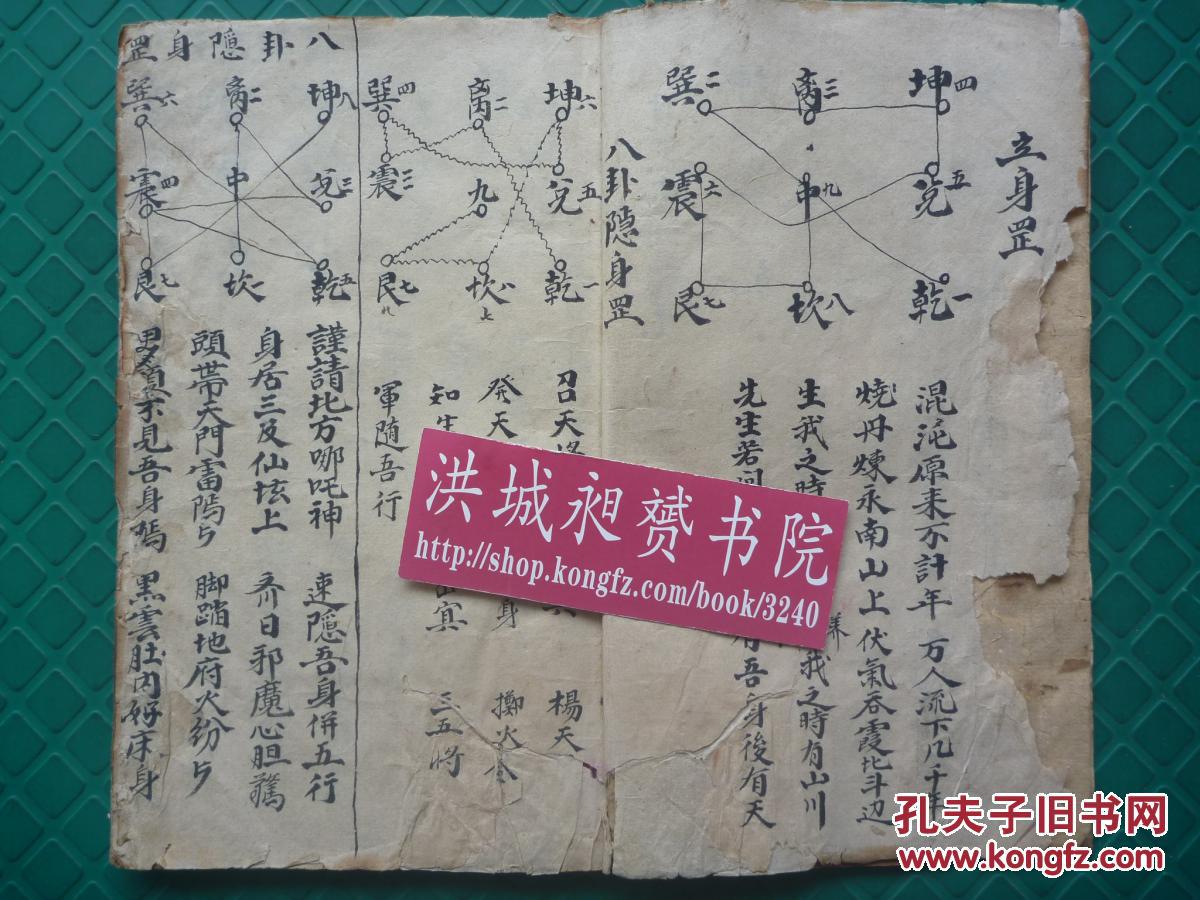 立身罡
坤四 离三 巽二
兌五 中九 震六
乾一 坎八 艮七
混沌原来不計年 万人流下几千年
燒丹煉永南山上 伏氣吞霞北斗边
生我之時 我之時有山川
先生若问 有吾身後有天
八卦隐身罡
坤六 离二 巽四
兌五 九 震三
乾一 坎八 艮七
召天 楊天
發天 身 擲火
知生 冥 三五將
軍随吾行
八卦隱身罡
坤八 离二 巽六
兌三 中 震四
乾五 坎一 艮七
謹請北方哪吒神 速隱吾身併五行
身居三及仙坛上 斎日邪魔心胆驚
頭带天門雷 脚踏地府火纷
不見吾身 黑雲肚内好床身
洪城昶赟书院
http://shop.kongfz.com/book/3240
孔夫子旧书网
www.kongfz.com